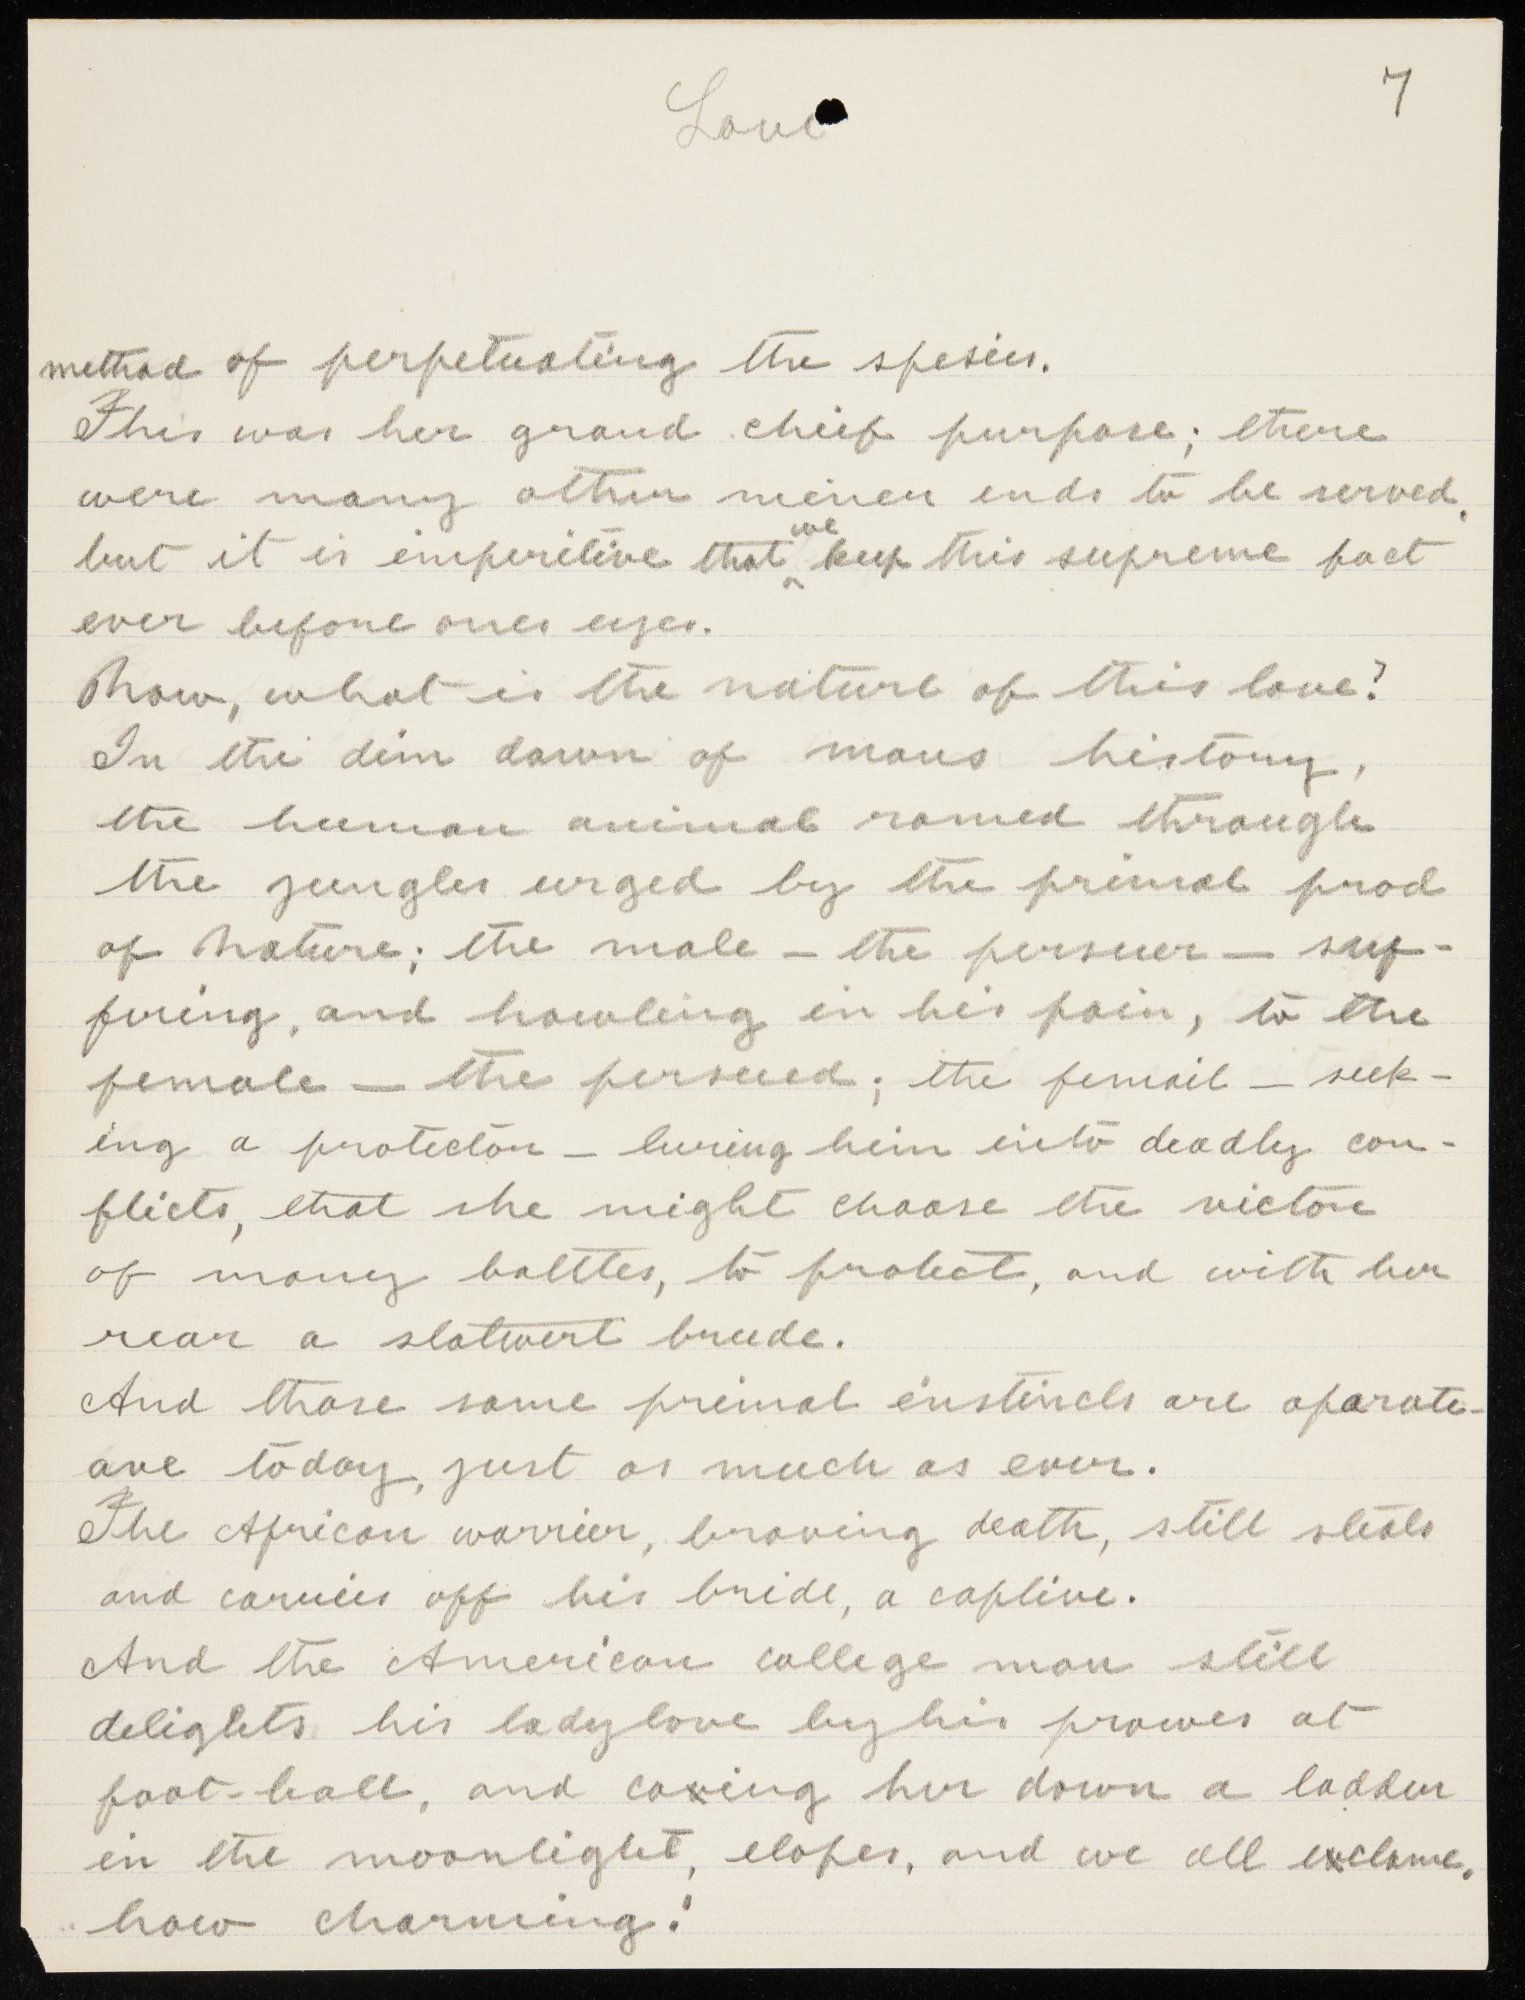 Love
7
method of perpetuating the spesies.
This was her grand chief purpose; there
were many other miner ends to be served,
but it is imperitive that we keep this supreme fact
ever before ones eyes.
Now, what is the nature of this love?
In the dim dawn of mans history,
the human animal romed through
the jungles urged by the primal prod
of Nature; the male — the persuer — suf-
fering, and howling in his pain, to the
female — the persued; the femail — seek-
ing a protector — luring him into deadly con-
flicts, that she might choose the victore
of many battles, to protect, and with her
rear a slatwert breede.
And those same primal instincts are oparate-
ave today, just as much as ever.
The African warrier, braving death, still steals
and carries off his bride, a captive.
And the American college man still
delights his ladylove by his prowes at
foot-ball, and coxing her down a ladder
in the moonlight, elopes, and we all exclame,
how charming!